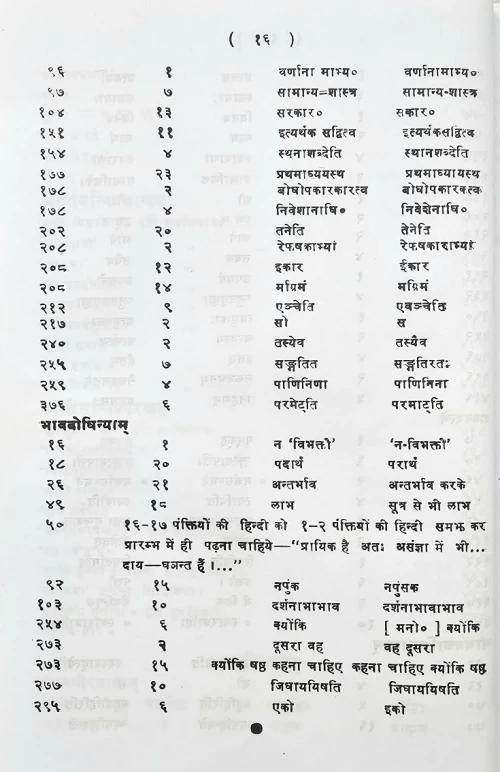 ( १६ )
९६ १ वर्णाना माभ्य० वर्णानामाभ्य०
९७ ७ सामान्य=शास्त्र सामान्य-शास्त्र
१०४ १३ सरकार० सकार०
१५१ ११ इत्यर्थक सद्वित्व इत्यर्थकसद्वित्व
१५४ ४ स्थनाशब्देति स्थानशब्देति
१७७ २३ प्रथमाध्ययेस्थ प्रथमाध्यायस्थ
१७८ २ बोधोपकारकारत्व बोधोपकारकत्क
१७८ ४ निवेशानाधि० निवेशेनाधि०
२०२ २० तनेति तेनेति
२०८ २ रेफषकाभ्यां रेफषकाराभ्यां
२०८ १२ इकार ईकार
२०८ १४ र्मागमं मग्रिमं
२१२ ९ एञ्चेति एवञ्चेति
२१७ २ सो स
२४० २ तस्येव तस्यैव
२५५ ७ सङ्गतित सङ्गतिरतः
२५९ ४ पाणिनिणा पाणिनिना
३७६ ६ परमेट्ति परमाट्ति
भावबोधिन्याम्
१६ १ न 'विभक्तो' 'न-विभक्तौ'
१८ २० पदाथं परार्थ
२६ २१ अन्तर्भाव अन्तर्भाव करके
४९ १८ लाभ सूत्र से भी लाभ
५० १६-१७ पंक्तियों की हिन्दी को १-२ पंक्तियों की हिन्दी समझ कर
प्रारम्भ में ही पढ़ना चाहिये—"प्रायिक है अतः असंज्ञा में भी...
दाय—घञन्त हैं।..."
९२ १५ नपुंक नपुंसक
१०३ १० दर्शनाभाभाव दर्शनाभावाभाव
२५४ ६ क्योंकि [ मनो० ] क्योंकि
२७३ २ दूसरा वह् वह दूसरा
२७३ १५ क्योंकि षष्ठ कहना चाहिए कहना चाहिए क्योंकि षष्ठ
२७७ १० जिघाययिषति जिघाययिषति
२९५ ६ एको इको